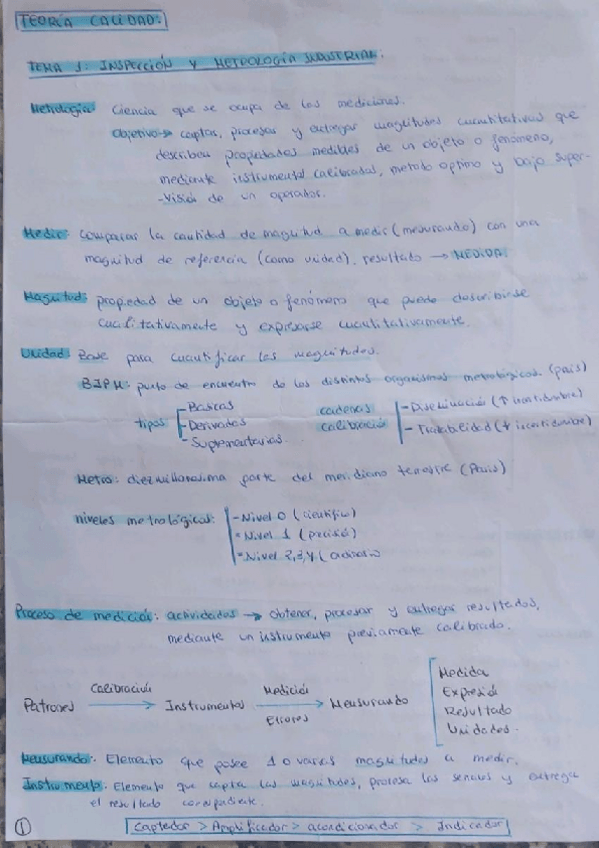 TEORÍA CALIDAD:
TEMA 1: INSPECCIÓN Y METROLOGÍA INDUSTRIAL.
Metrología: Ciencia que se ocupa de las mediciones.
Objetivo → captar, procesar y entregar magnitudes cuantitativas que
describen propiedades medibles de un objeto o fenómeno,
mediante instrumental calibrados, metodo optimo y bajo super-
-visión de un operador.
Medir: Comparar la cantidad de magnitud a medir (mesurando) con una
magnitud de referencia (como unidad). resultado → MEDIDA.
Magnitud: propiedad de un objeto o fenómeno que puede describirse
cualitativamente y expresarse cuantitativamente.
Unidad: Base para cuantificar las magnitudes.
BIPM: punto de encuentro de los distintos organismos metrológicos (país)
tipos - Basicas
- Derivadas
- Suplementarias.
cadenas calibración - Diseminación (↑ incertidumbre)
- Trazabilidad (↓ incertidumbre)
Metro: diezmillonesima parte del meridiano terrestre (París)
niveles metrológicos: - Nivel 0 (científico)
- Nivel 1 (precisió)
- Nivel 2,3,4 (
Proceso de medición: actividades → obtener, procesar y entregar resultados,
mediante un instrumento previamente calibrado.
Patrones Calibración → Instrumentos Medición Errores → Mensurando
Medida
Expresió
Resultado
Unidades.
Mensurando: Elemento que posee 1 o varias magnitudes a medir.
Instrumento: Elemento que capta las magnitudes, procesa las señales y entrega
el resultado correspondiente.
① Captador > Amplificador > acondicionador > Indicador